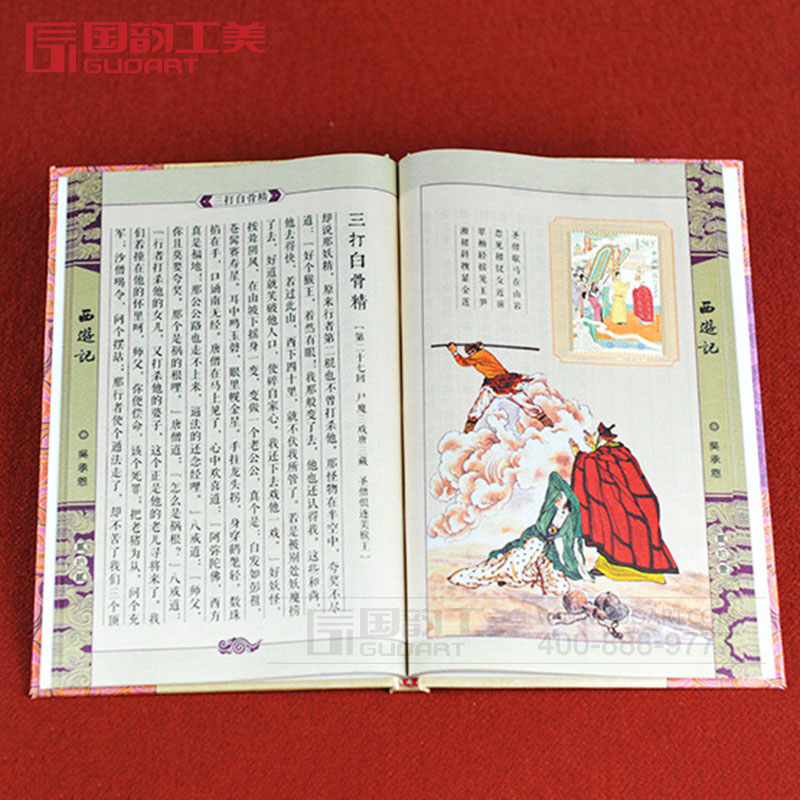 国韵工美
GUOART
三打白骨精
西遊記
吴承恩
三打白骨精
(第二十七回 尸魔三戏唐三藏 圣僧恨逐美猴王)
却说那妖精,原来行者第二棍也不曾打杀他。那怪物在半空中,夸奖不尽
道:“好个猴王,着然有眼!我那般变了去,他也还认得我。这些和尚,
他去得快,若过此山,西下四十里,就不伏我所管了。若是被别处妖魔捞
了去,好道就笑破他人口,使碎自家心。我还下去戏他一戏。”好妖怪,
按耸阴风,在山坡下摇身一变,变做一个老公公,真个是:白发如彭祖,
苍髯赛寿星。耳中鸣玉磬,眼里幌金星。手拄龙头拐,身穿鹤氅轻。数珠
掐在手,口诵南无经。唐僧在马上见了,心中欢喜道:“阿弥陀佛!西方
真是福地!那公公路也走不上来,逼法的还念经哩。”八戒道:“师父,
你且莫要夸奖。那个是祸的根哩。”唐僧道:“怎么是祸根?”八戒道:
“行者打杀他的女儿,又打杀他的婆子,这个正是他的老儿寻将来了。我
们若撞在他的怀里呵,师父,你便偿命,该个死罪;把老猪为从,问个充
军;沙僧喝令,问个摆站;那行者使个遁法走了,却不苦了我们三个顶
圣僧歇马在山岩
忽见裙钗女近前
翠袖轻摇笼玉笋
湘裙斜拽显金莲
西遊記
吴承恩
国韵工美
GUOART
400-888-977